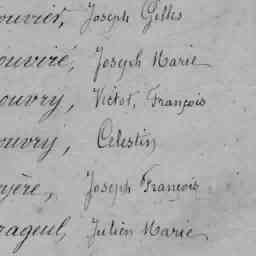 ouvier, Joseph Gilles
ouviré, Joseph Marie
ouvry, Victor, François
ouvry, Célestin
yère, Joseph François
rageul, Julien Marie